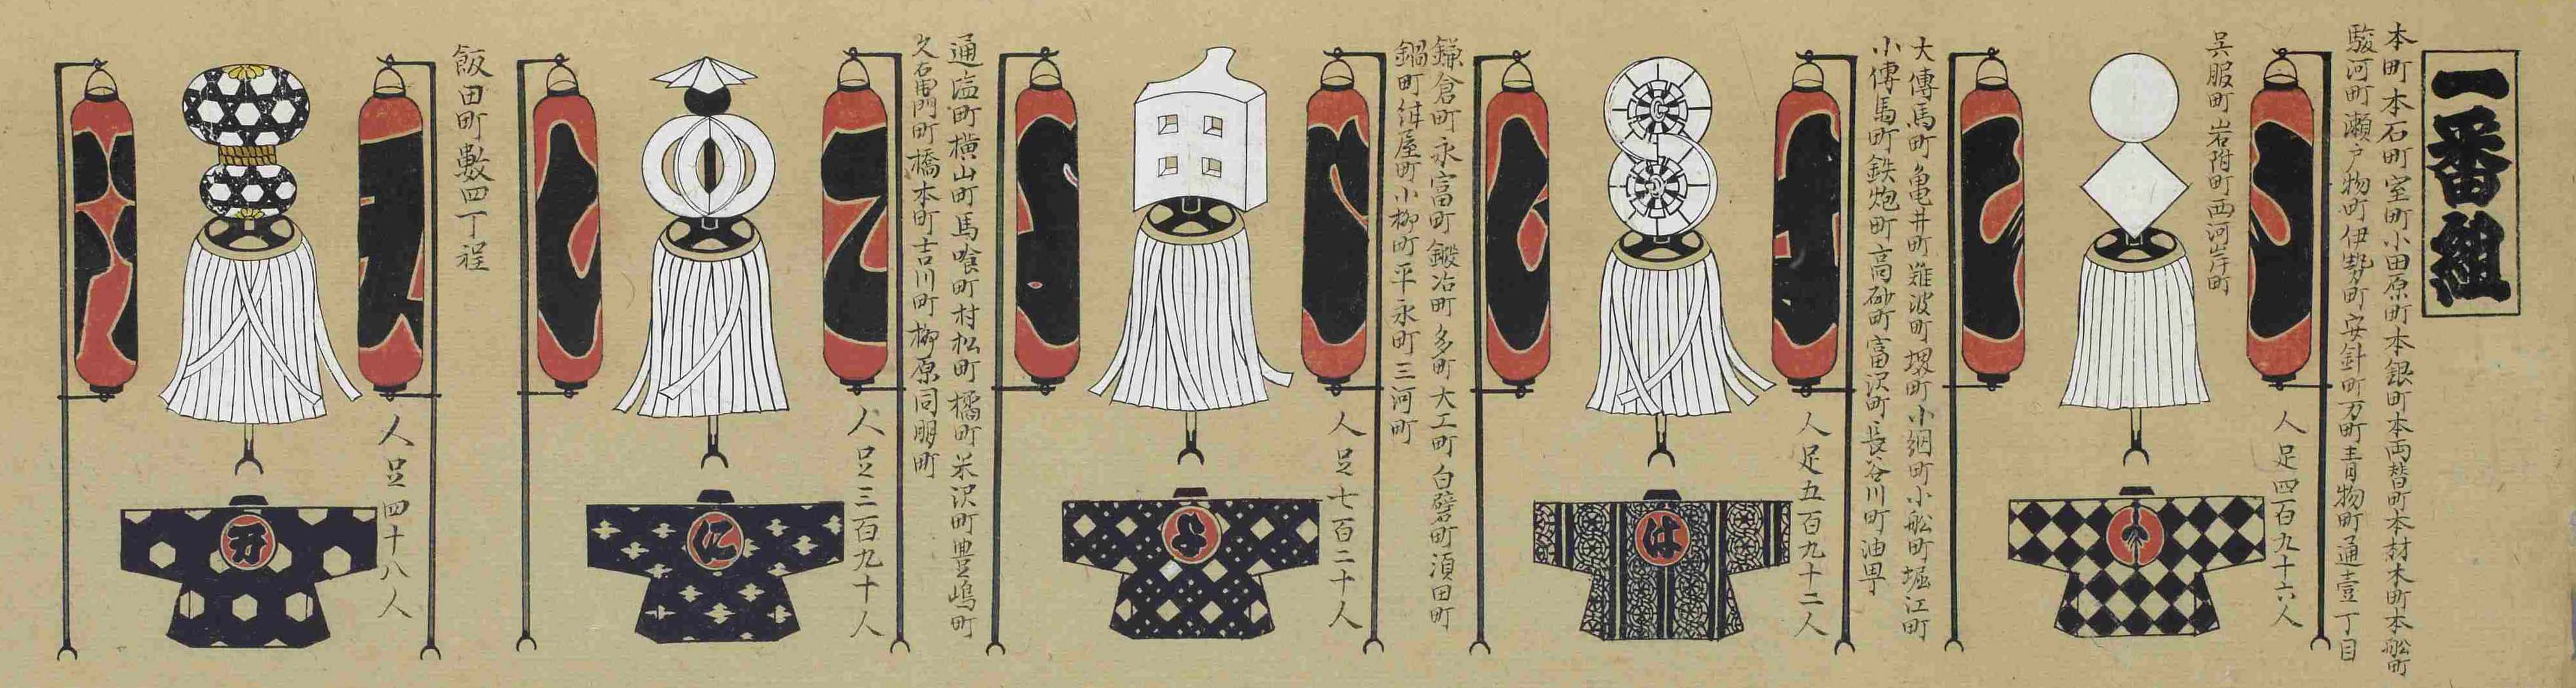 一番組
本町本石町室町小田原町本銀町本両替町本材木町本船町
駿河町瀬戸物町伊勢町安針町万町青物町通壹丁目
呉服町岩附町西河岸町
い
人足四百九十六人
大傳馬町亀井町難波町堺町小網町小船町堀江町
小傳馬町鉄炮町高砂町富沢町長谷川町油町
は
人足五百九十二人
鎌倉町永富町鍛冶町多町大工町白壁町須田町
鍋町紺屋町小柳町平永町三河町
よ
人足七百二十人
通塩町横山町馬喰町村松町橘町米沢町豊嶋町
久右衛門町橋本町吉川町柳原同朋町
に
人足三百九十人
飯田町數四丁程
万
人足四十八人